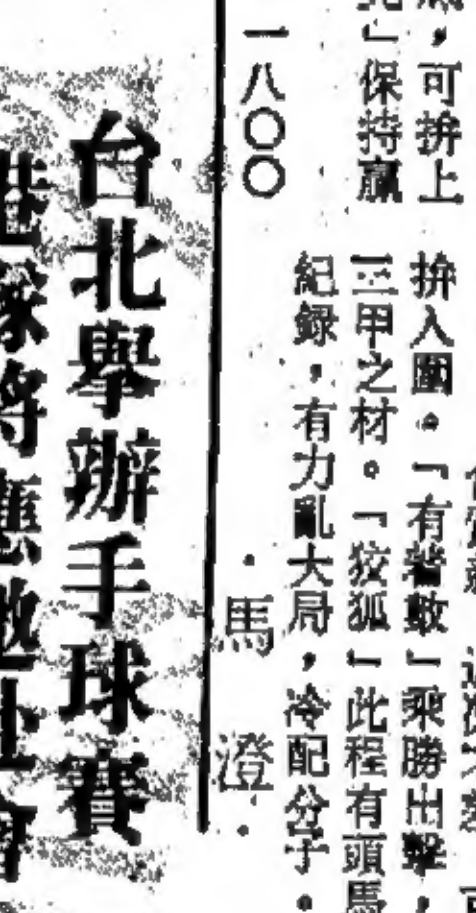 ，可拚上
」保持贏
一八〇〇
拚入圍。「有着數」乘勝出擊，
三甲之材。「狡狐」此程有頭馬
紀錄，有力亂大局，冷配分子。
·馬 澄·
台北舉辦手球賽
港隊將應邀赴會